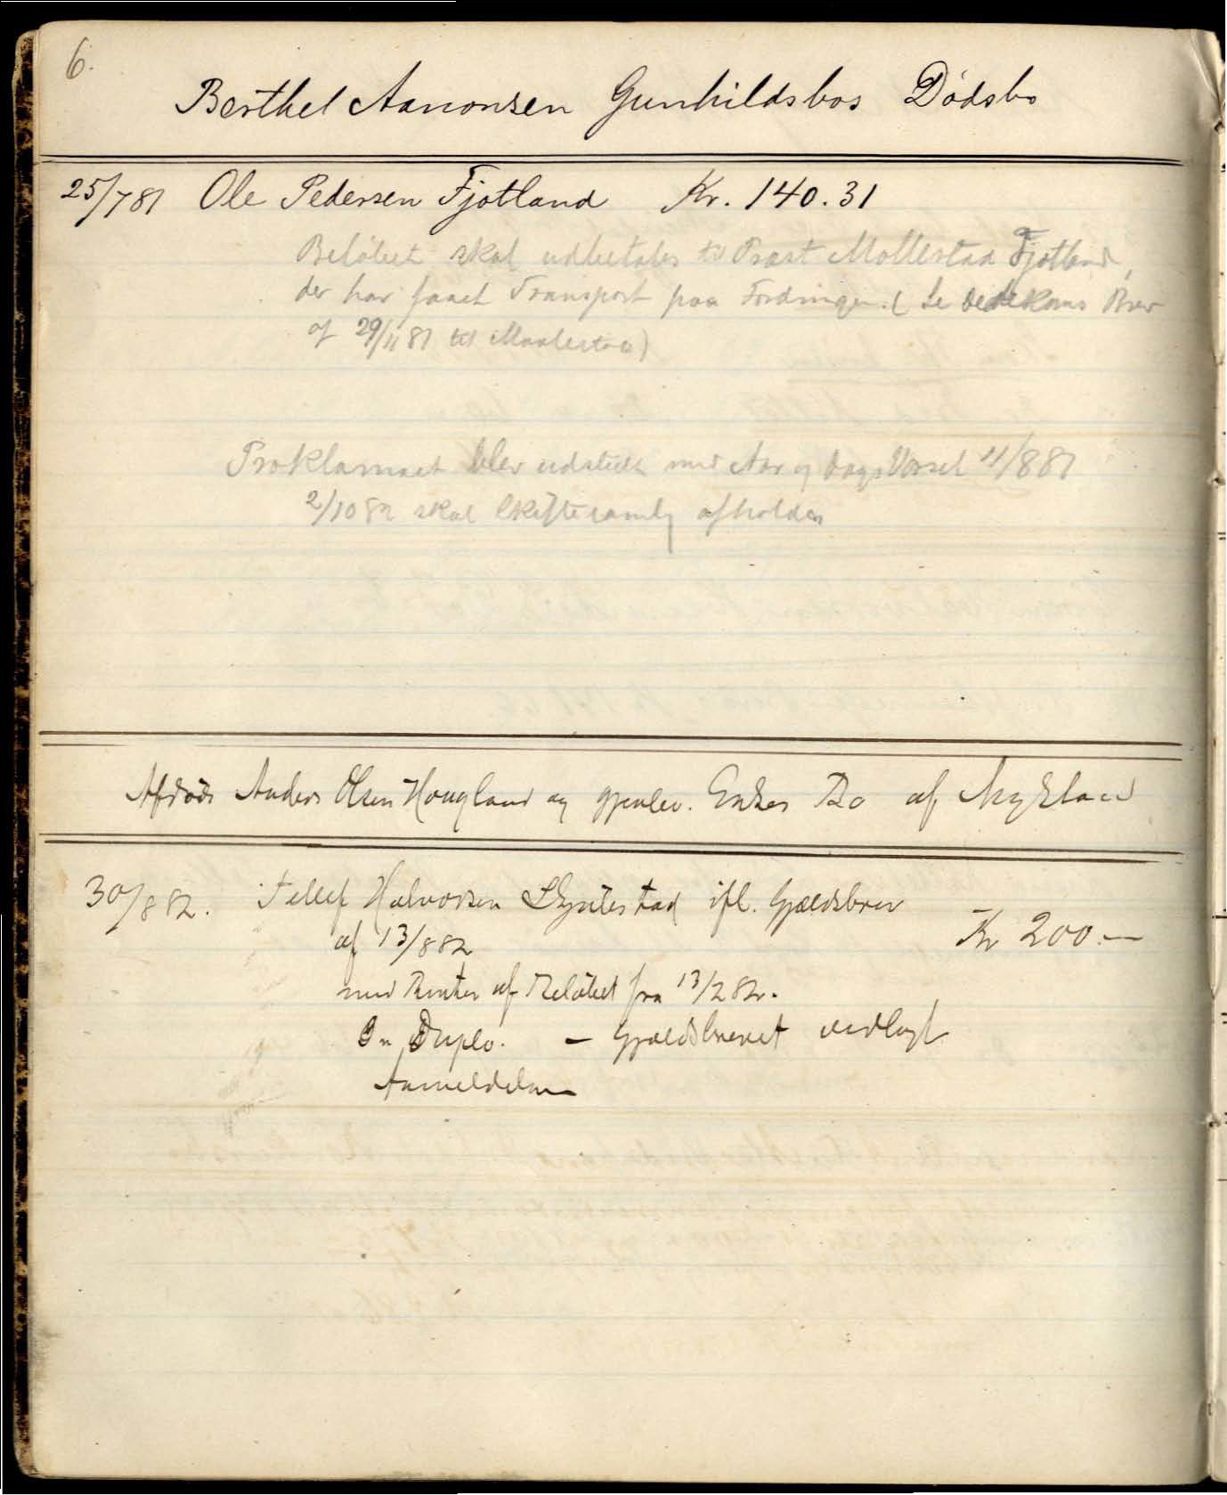 6.
Berthel Aanonsen Gunhildsbos Dödsbo
25/7 81 Ole Pedersen Fjotland Kr. 140.31
Belöbet skal udbetales til Præst Mollestad Fjotland,
der har faaet Transport paa Fordringen. (Se Brev
af 29/11 81 til)
Proklamaet blev udstedt med Aar og Dags Varsel 11/8 81
2/10 82 skal Skiftesamlg afholdes
Afdöde Anders Olsen Hougland og gjenlev. Enkes Bo af Nykland
30/8 82. Tellef Halvorsen ifl. Gjældsbrev
af 13/8 82 Kr 200.—
med Renter af Belöbet fra 13/2 82.
In Duplo. — Gjældsbrevet vedlagt
Anmeldelsen